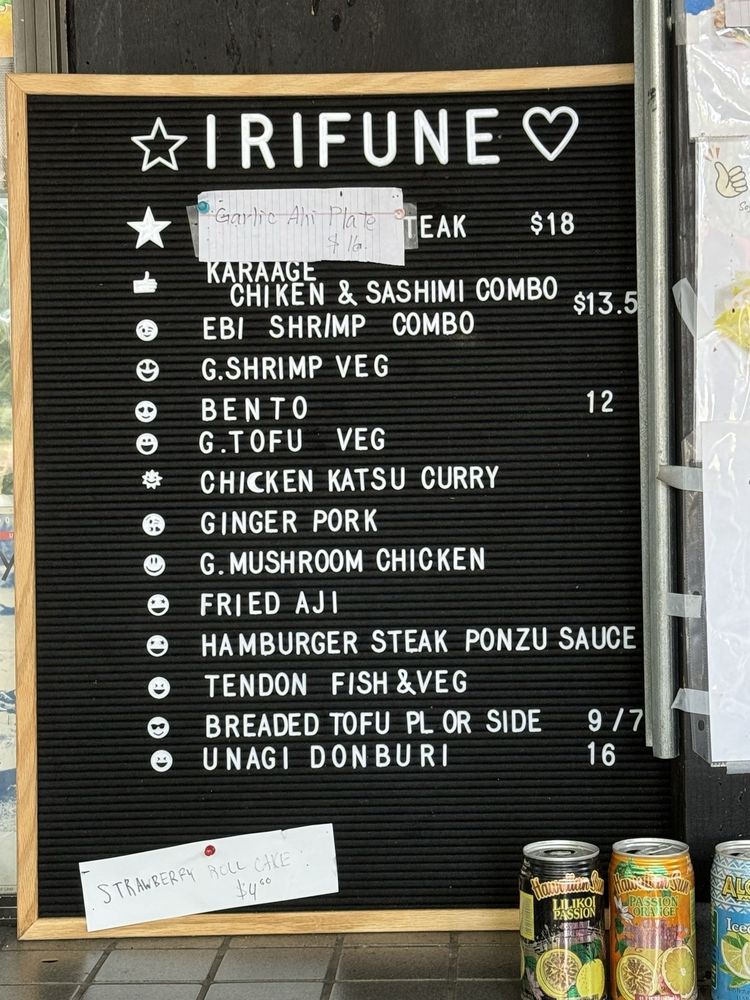 IRIFUNE
Garlic Ahi Plate
$16.
TEAK $18
KARAAGE
CHIKEN & SASHIMI COMBO $13.5
EBI SHRIMP COMBO
G.SHRIMP VEG
BENTO 12
G.TOFU VEG
CHICKEN KATSU CURRY
GINGER PORK
G.MUSHROOM CHICKEN
FRIED AJI
HAMBURGER STEAK PONZU SAUCE
TENDON FISH & VEG
BREADED TOFU PL OR SIDE 9/7
UNAGI DONBURI 16
STRAWBERRY ROLL CAKE
$4.00
Hawaiian Sun
LILIKOI
PASSION
Hawaiian Sun
PASSION
ORANGE
ALO
Iced